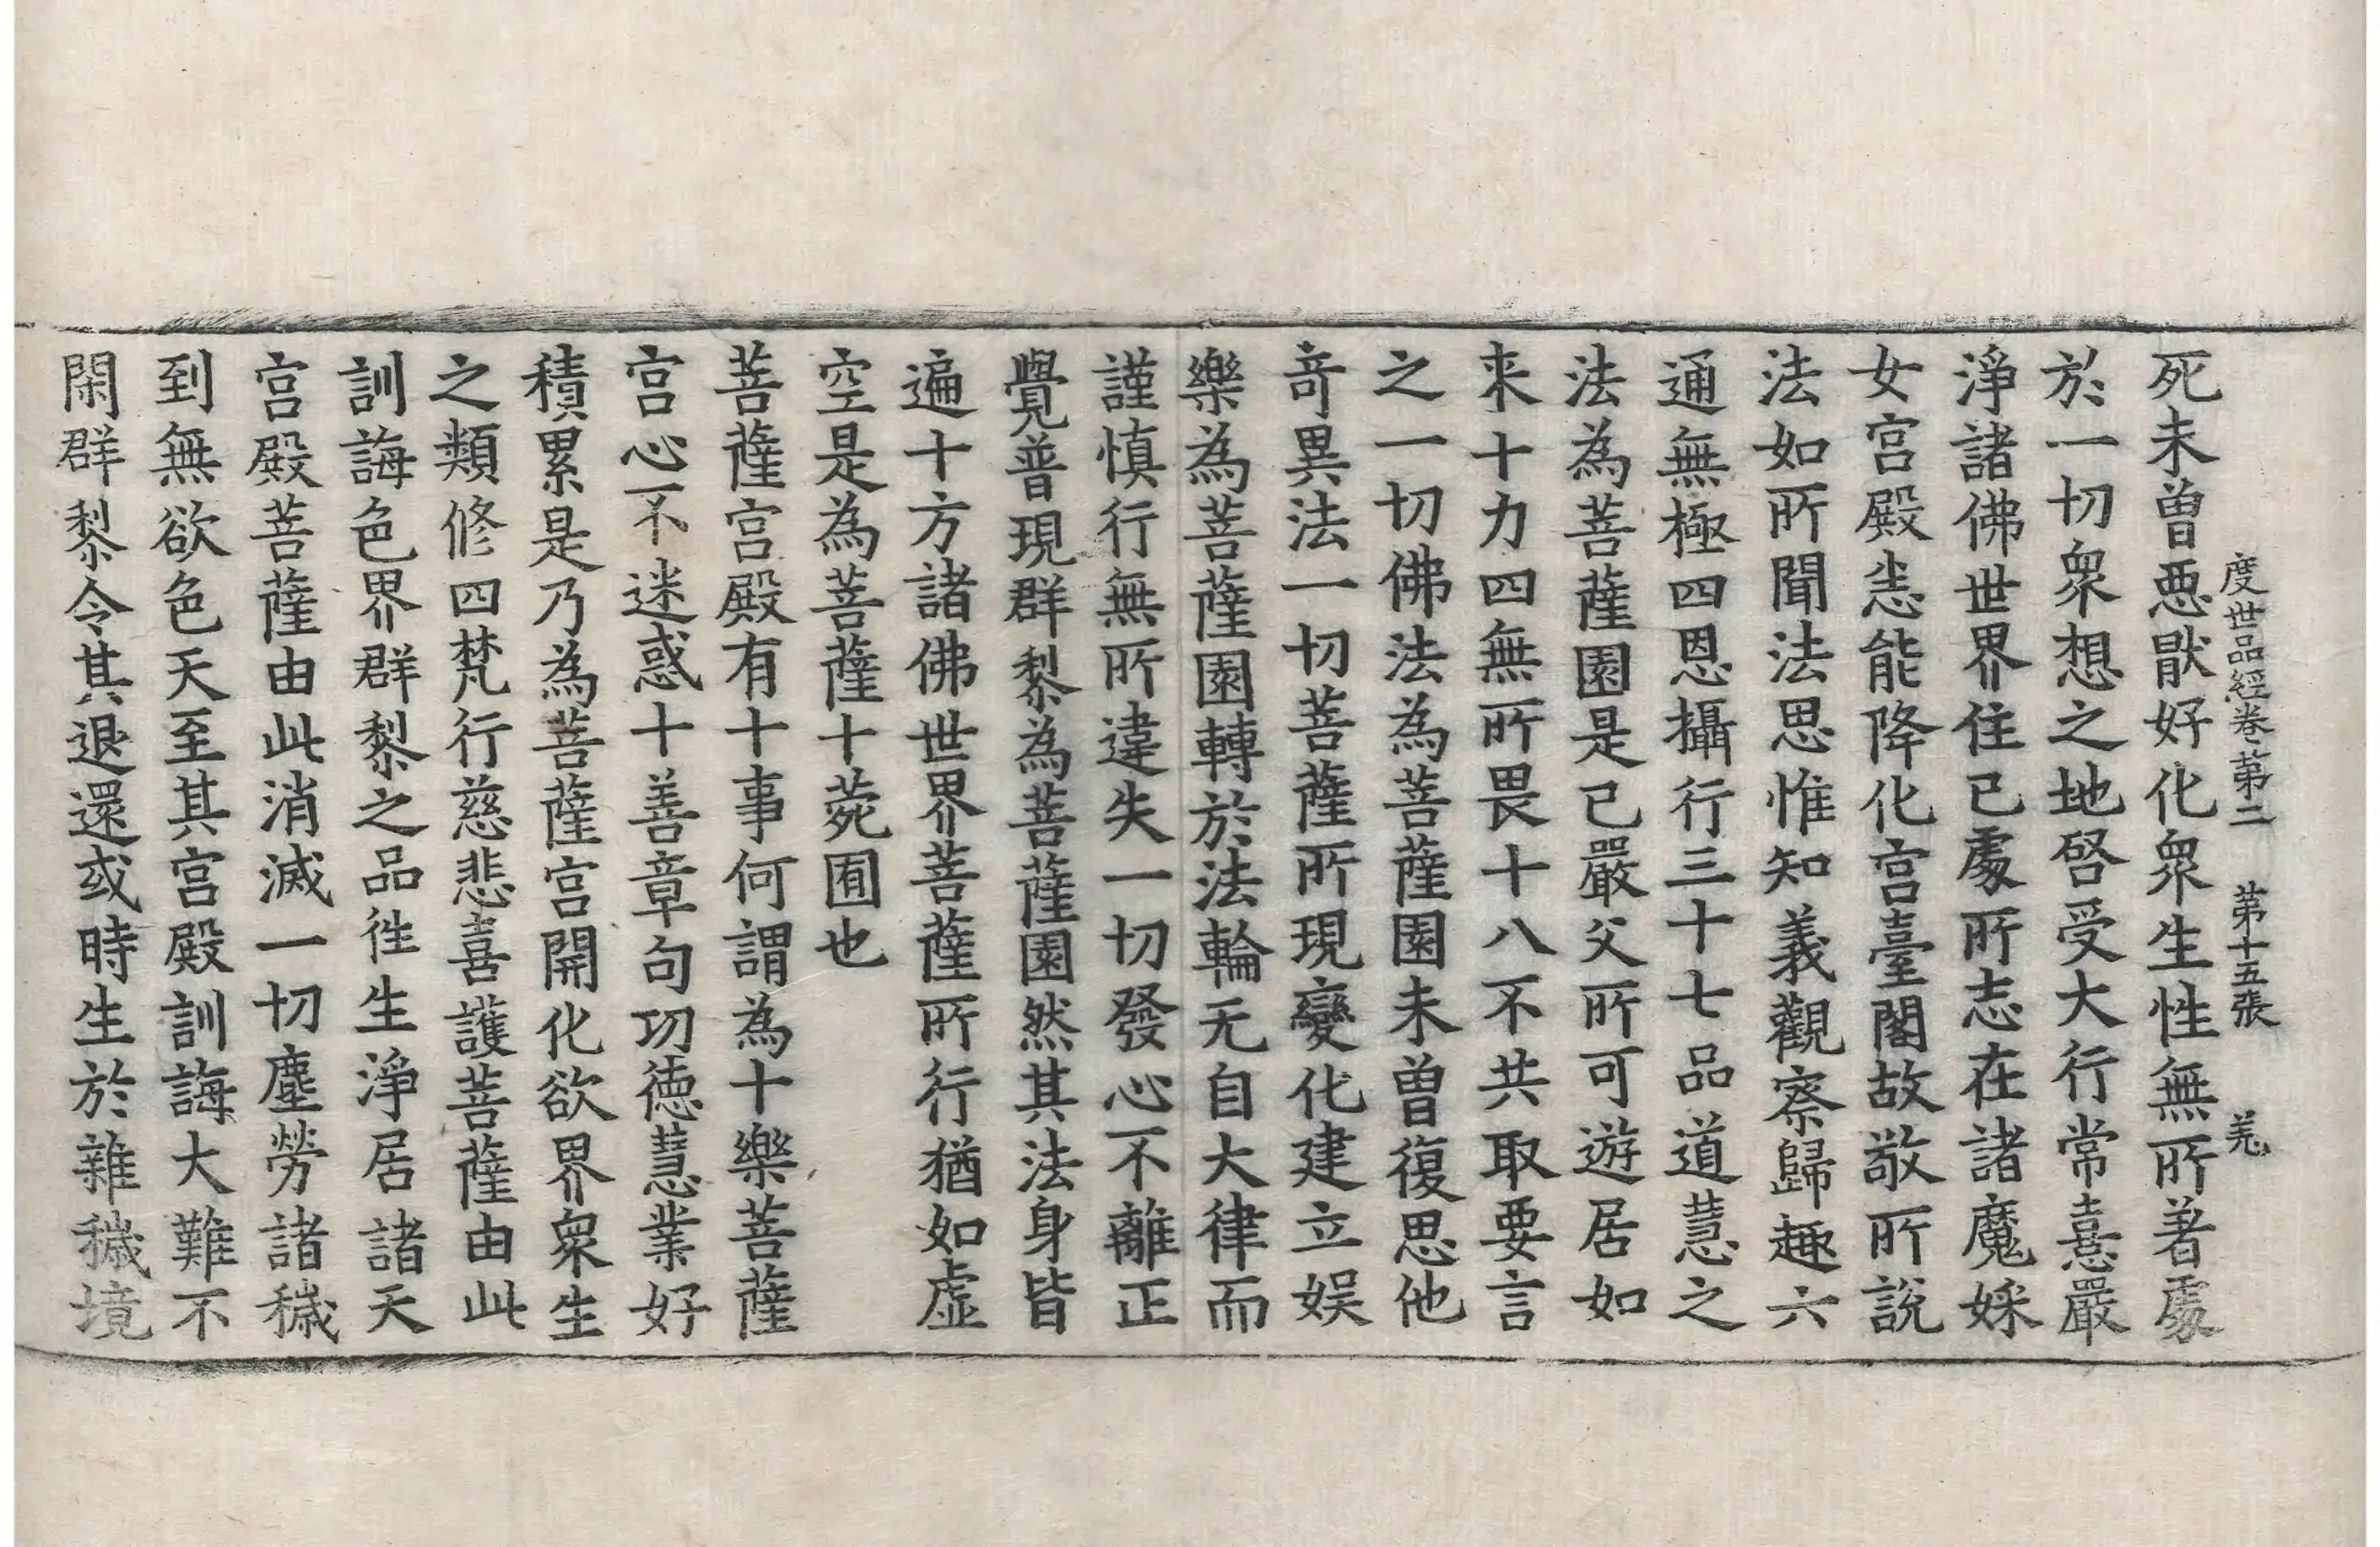 度世品經卷第二　第十五張　羌
死未曾惡猒好化衆生性無所著處
於一切衆想之地啓受大行常憙嚴
淨諸佛世界住已處所志在諸魔婇
女宮殿恙能降化宮臺閣故敬所說
法如所聞法思惟知義觀察歸趣六
通無極四恩攝行三十七品道慧之
法為菩薩園是已嚴父所可遊居如
来十力四無所畏十八不共取要言
之一切佛法為菩薩園未曾復思他
竒異法一切菩薩所現變化建立娱
樂為菩薩園轉於法輪无自大律而
謹慎行無所違失一切發心不離正
覺普現群黎為菩薩園然其法身皆
遍十方諸佛世界菩薩所行猶如虛
空是為菩薩十菀囿也
菩薩宮殿有十事何謂為十樂菩薩
宮心不迷惑十善章句功德慧業好
積累是乃為菩薩宮開化欲界衆生
之類修四梵行慈悲喜護菩薩由此
訓誨色界群黎之品徃生淨居諸天
宮殿菩薩由此消滅一切塵勞諸穢
到無欲色天至其宮殿訓誨大難不
閑群黎令其退還或時生於雜穢境